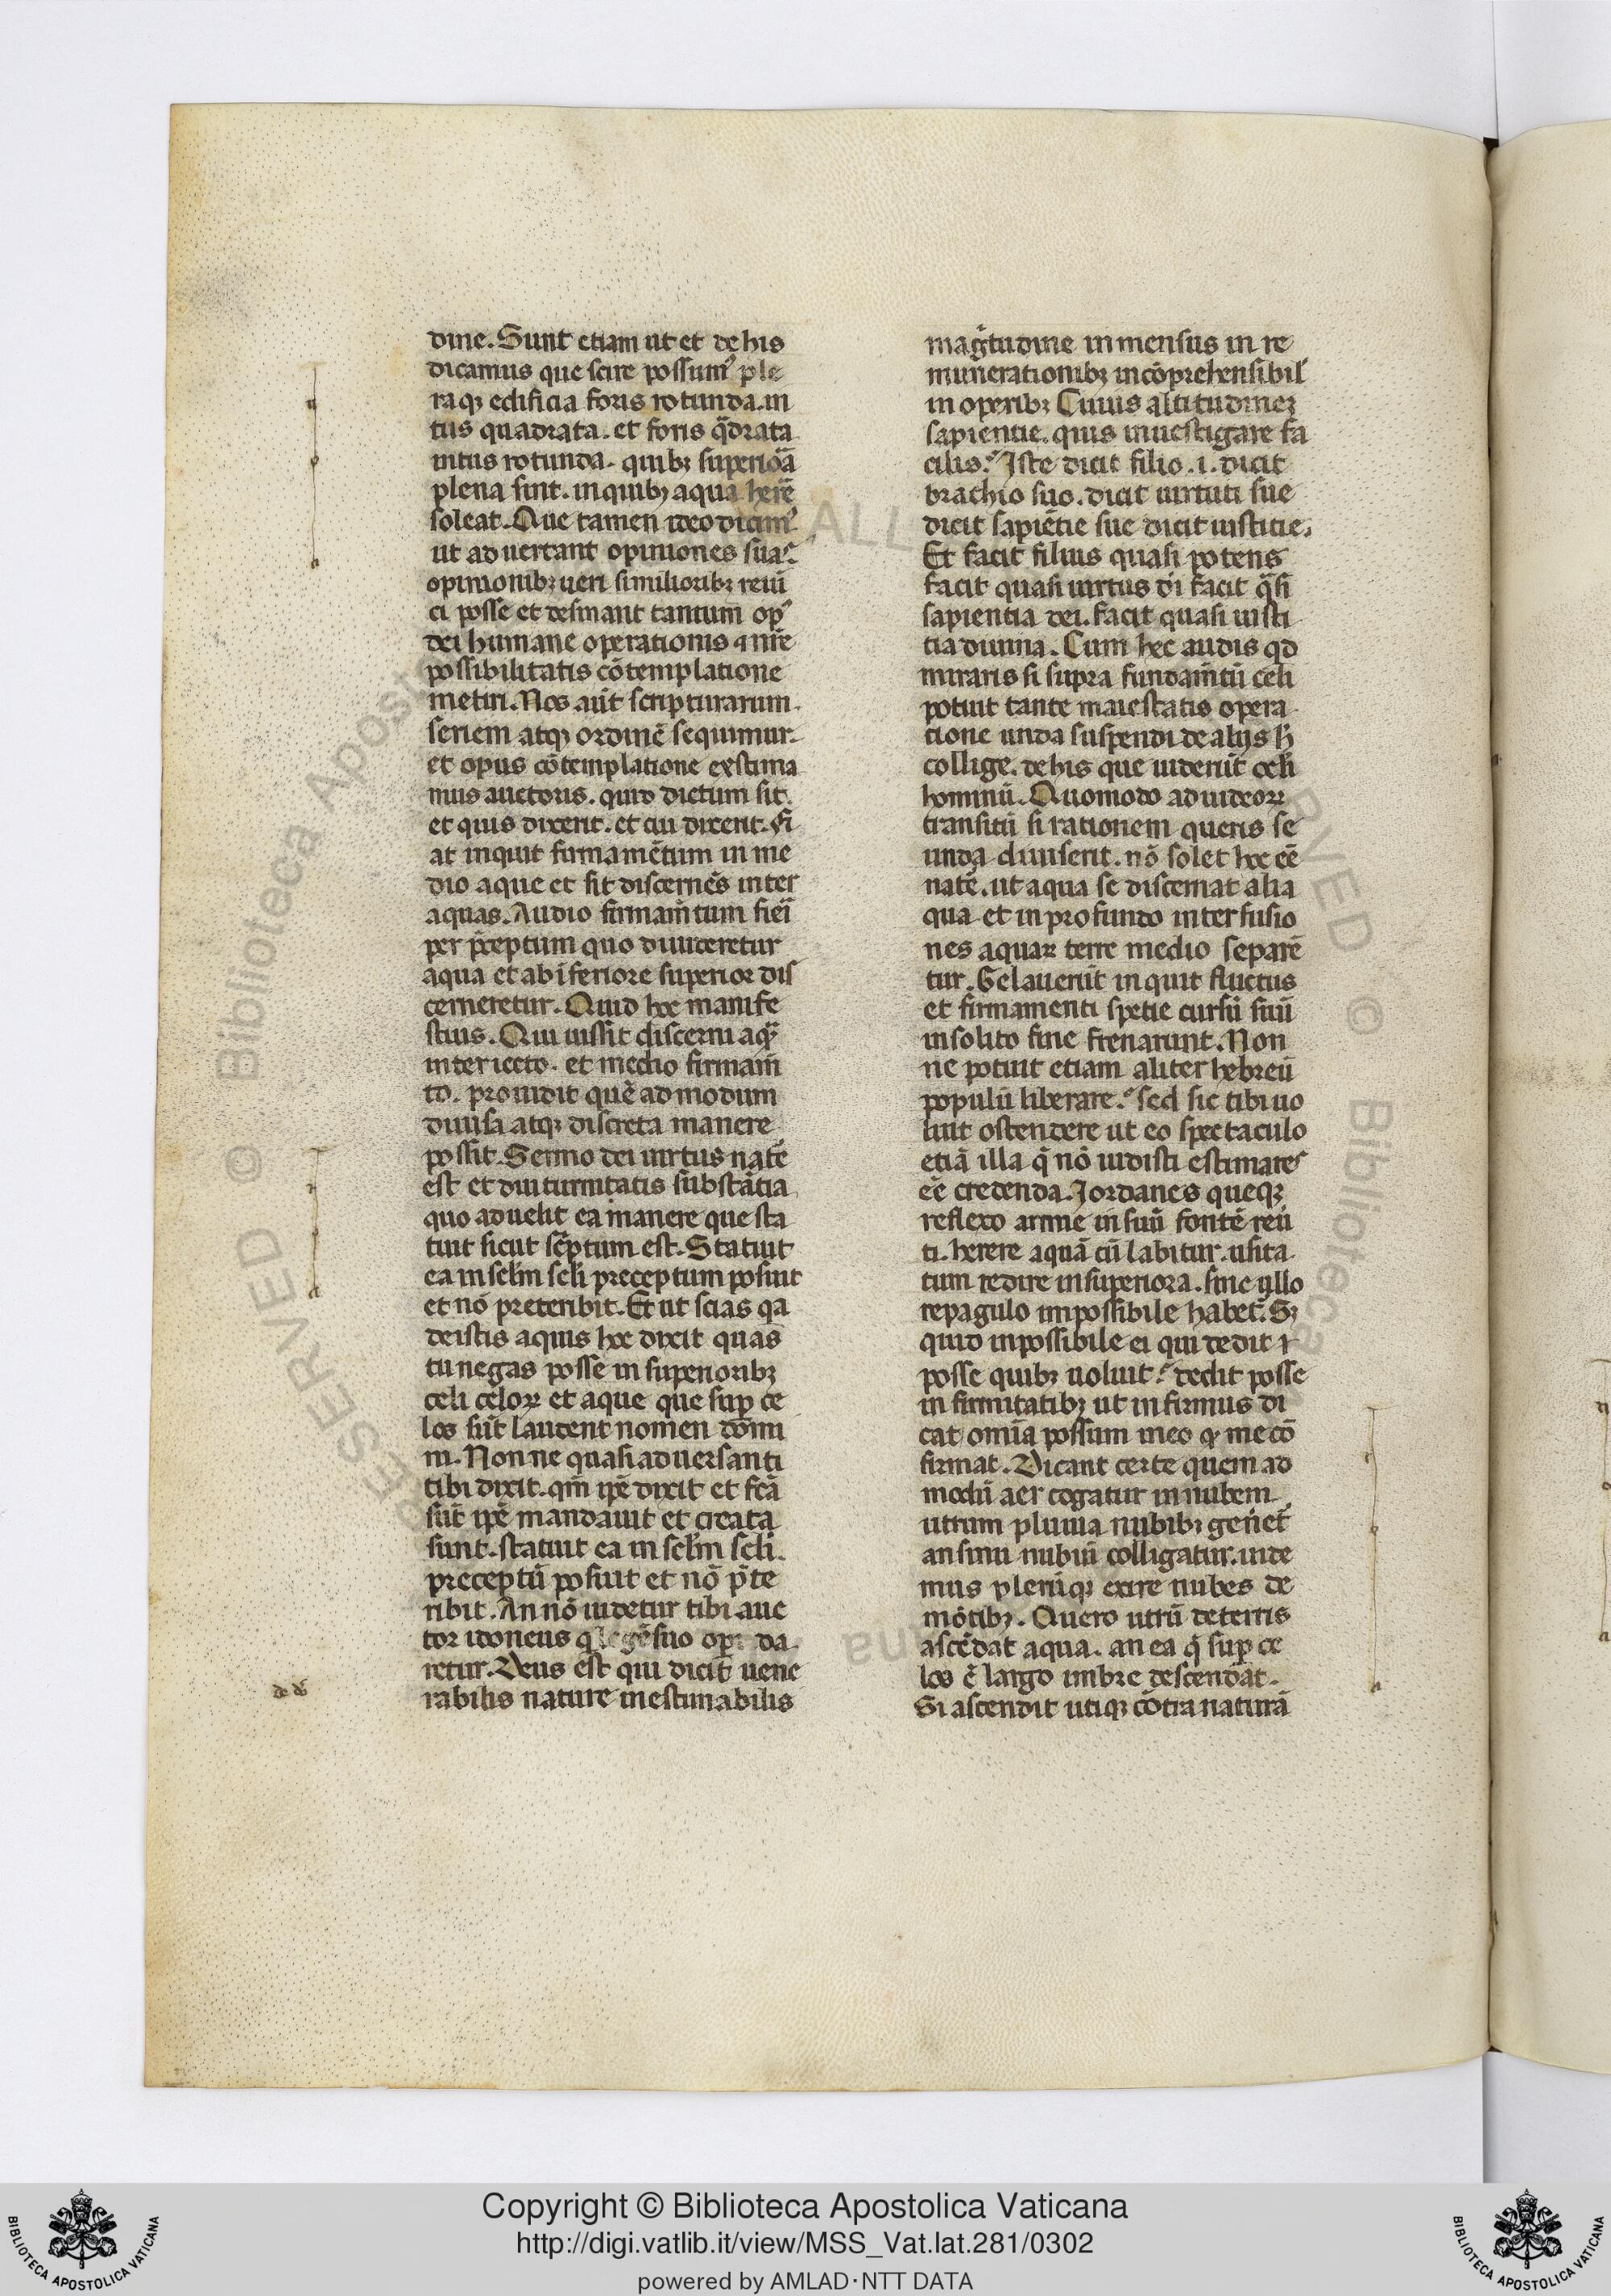 dine. Sunt etiam ut et de his
dicamus que scire possumꝰ ple
raqꝫ edificia foris rotunda. in
tus quadrata. et foris q̃drata
intus rotunda. quibꝫ superiõa
plena sint. in quibꝫ aqua herẽ
soleat. Que tamen ideo dicimꝰ
ut aduertant opiniones suas
opinionibꝫ ueri similioribꝫ reui
ci posse et desinant tantum opꝰ
dei humane operationis ⁊ nr̃e
possibilitatis cõtemplatione
metiri. Nos aũt scripturarum
seriem atqꝫ ordinẽ sequimur.
et opus cõtemplatione exstima
mus auctoris. quid dictum sit.
et quis dixerit. et cui dixerit. Fi
at inquit firmamẽtum in me
dio aque et sit discernẽs inter
aquas. Audio firmam̃tum fieri
per p̃ceptum quo diuideretur
aqua et ab ĩferiore superior dis
cerneretur. Quid hoc manife
stius. Qui iussit discerni aqua
interiecto. et medio firmam̃
to. prouidit quẽ ad modum
diuisa atqꝫ discreta manere
possit. Sermo dei uirtus natẽ
est et diuturnitatis substãtia
quo ad uelit ea manere que sta
tuit sicut sc̃ptum est. Statuit
ea in sclm̃ scli preceptum posuit
et nõ preteribit. Et ut scias qa
de istis aquis hoc dixit quas
tu negas posse in superioribꝫ
celi celoꝝ et aque que suꝑ ce
los sũt laudent nomen domi
ni. Nonne quasi aduersanti
tibi dixit. qm̃ ip̃e dixit et fc̃a
sũt ip̃e mandauit et creata
sunt. statuit ea in sclm̃ scli.
preceptũ posuit et nõ p̃te
ribit. An nõ uidetur tibi auc
tor idoneus q legẽ suo da
retur. Deus est qui dicit uene
rabilis nature inestimabilis
de d̃s
mag̃tudine inmensus in re
munerationibꝫ incõprehensibil̃
in operibꝫ Cuius altitudineꝫ
sapientie. quis inuestigare fa
cilis? Iste dicit filio .i. dicit
brachio suo. dicit uirtuti sue
dicit sapiẽtie sue dicit iustitie.
Et facit filius quasi potens
facit quasi uirtus di facit q̃si
sapientia dei. facit quasi iusti
tia diuina. Cum hec audis qd
miraris si supra fundam̃tũ celi
potuit tante maiestatis opera
tione unda suspendi de alijs h̃
collige. de his que uiderũt celi
hominũ. Quomodo ad iudeoꝝ
transitũ si rationem queris se
unda diuiserit. nõ solet hoc eẽ
natẽ. ut aqua se discernat alia
qua et in profundo interfusio
nes aquaꝝ terre medio separẽ
tur. Gelauerũt inquit fluctus
et firmamenti spetie cursũ suũ
insolito fine frenarunt. Non
ne potuit etiam aliter hebreũ
populũ liberare? sed sic tibi uo
luit ostendere ut eo spectaculo
etiã illa q̃ nõ uidisti estimares
eẽ credenda. Iordanes queqꝫ
reflexo amne in suũ fontẽ reũ
ti. herere aquã cũ labitur. usita
tum redire in superiora. sine ullo
repagulo impossibile habet̃. Sꝫ
quid inpossibile ei qui dedit
posse quibꝫ uoluit? dedit posse
infirmitatibꝫ ut infirmus di
cat omĩa possum in eo qͥ me cõ
firmat. Dicant certe quem ad
modũ aer cogatur in nubem
utrum pluuia nubibꝫ genet̃
an sinu nubiũ colligatur. uide
mus plerũqꝫ exire nubes de
mõtibꝫ. Quero utrũ de terris
ascẽdat aqua. an ea q̃ suꝑ ce
los ẽ largo imbre descendat.
Si ascendit utiqꝫ cõtra naturã
Copyright © Biblioteca Apostolica Vaticana
http://digi.vatlib.it/view/MSS_Vat.lat.281/0302
powered by AMLAD·NTT DATA
BIBLIOTECA APOSTOLICA VATICANA
BIBLIOTECA APOSTOLICA VATICANA